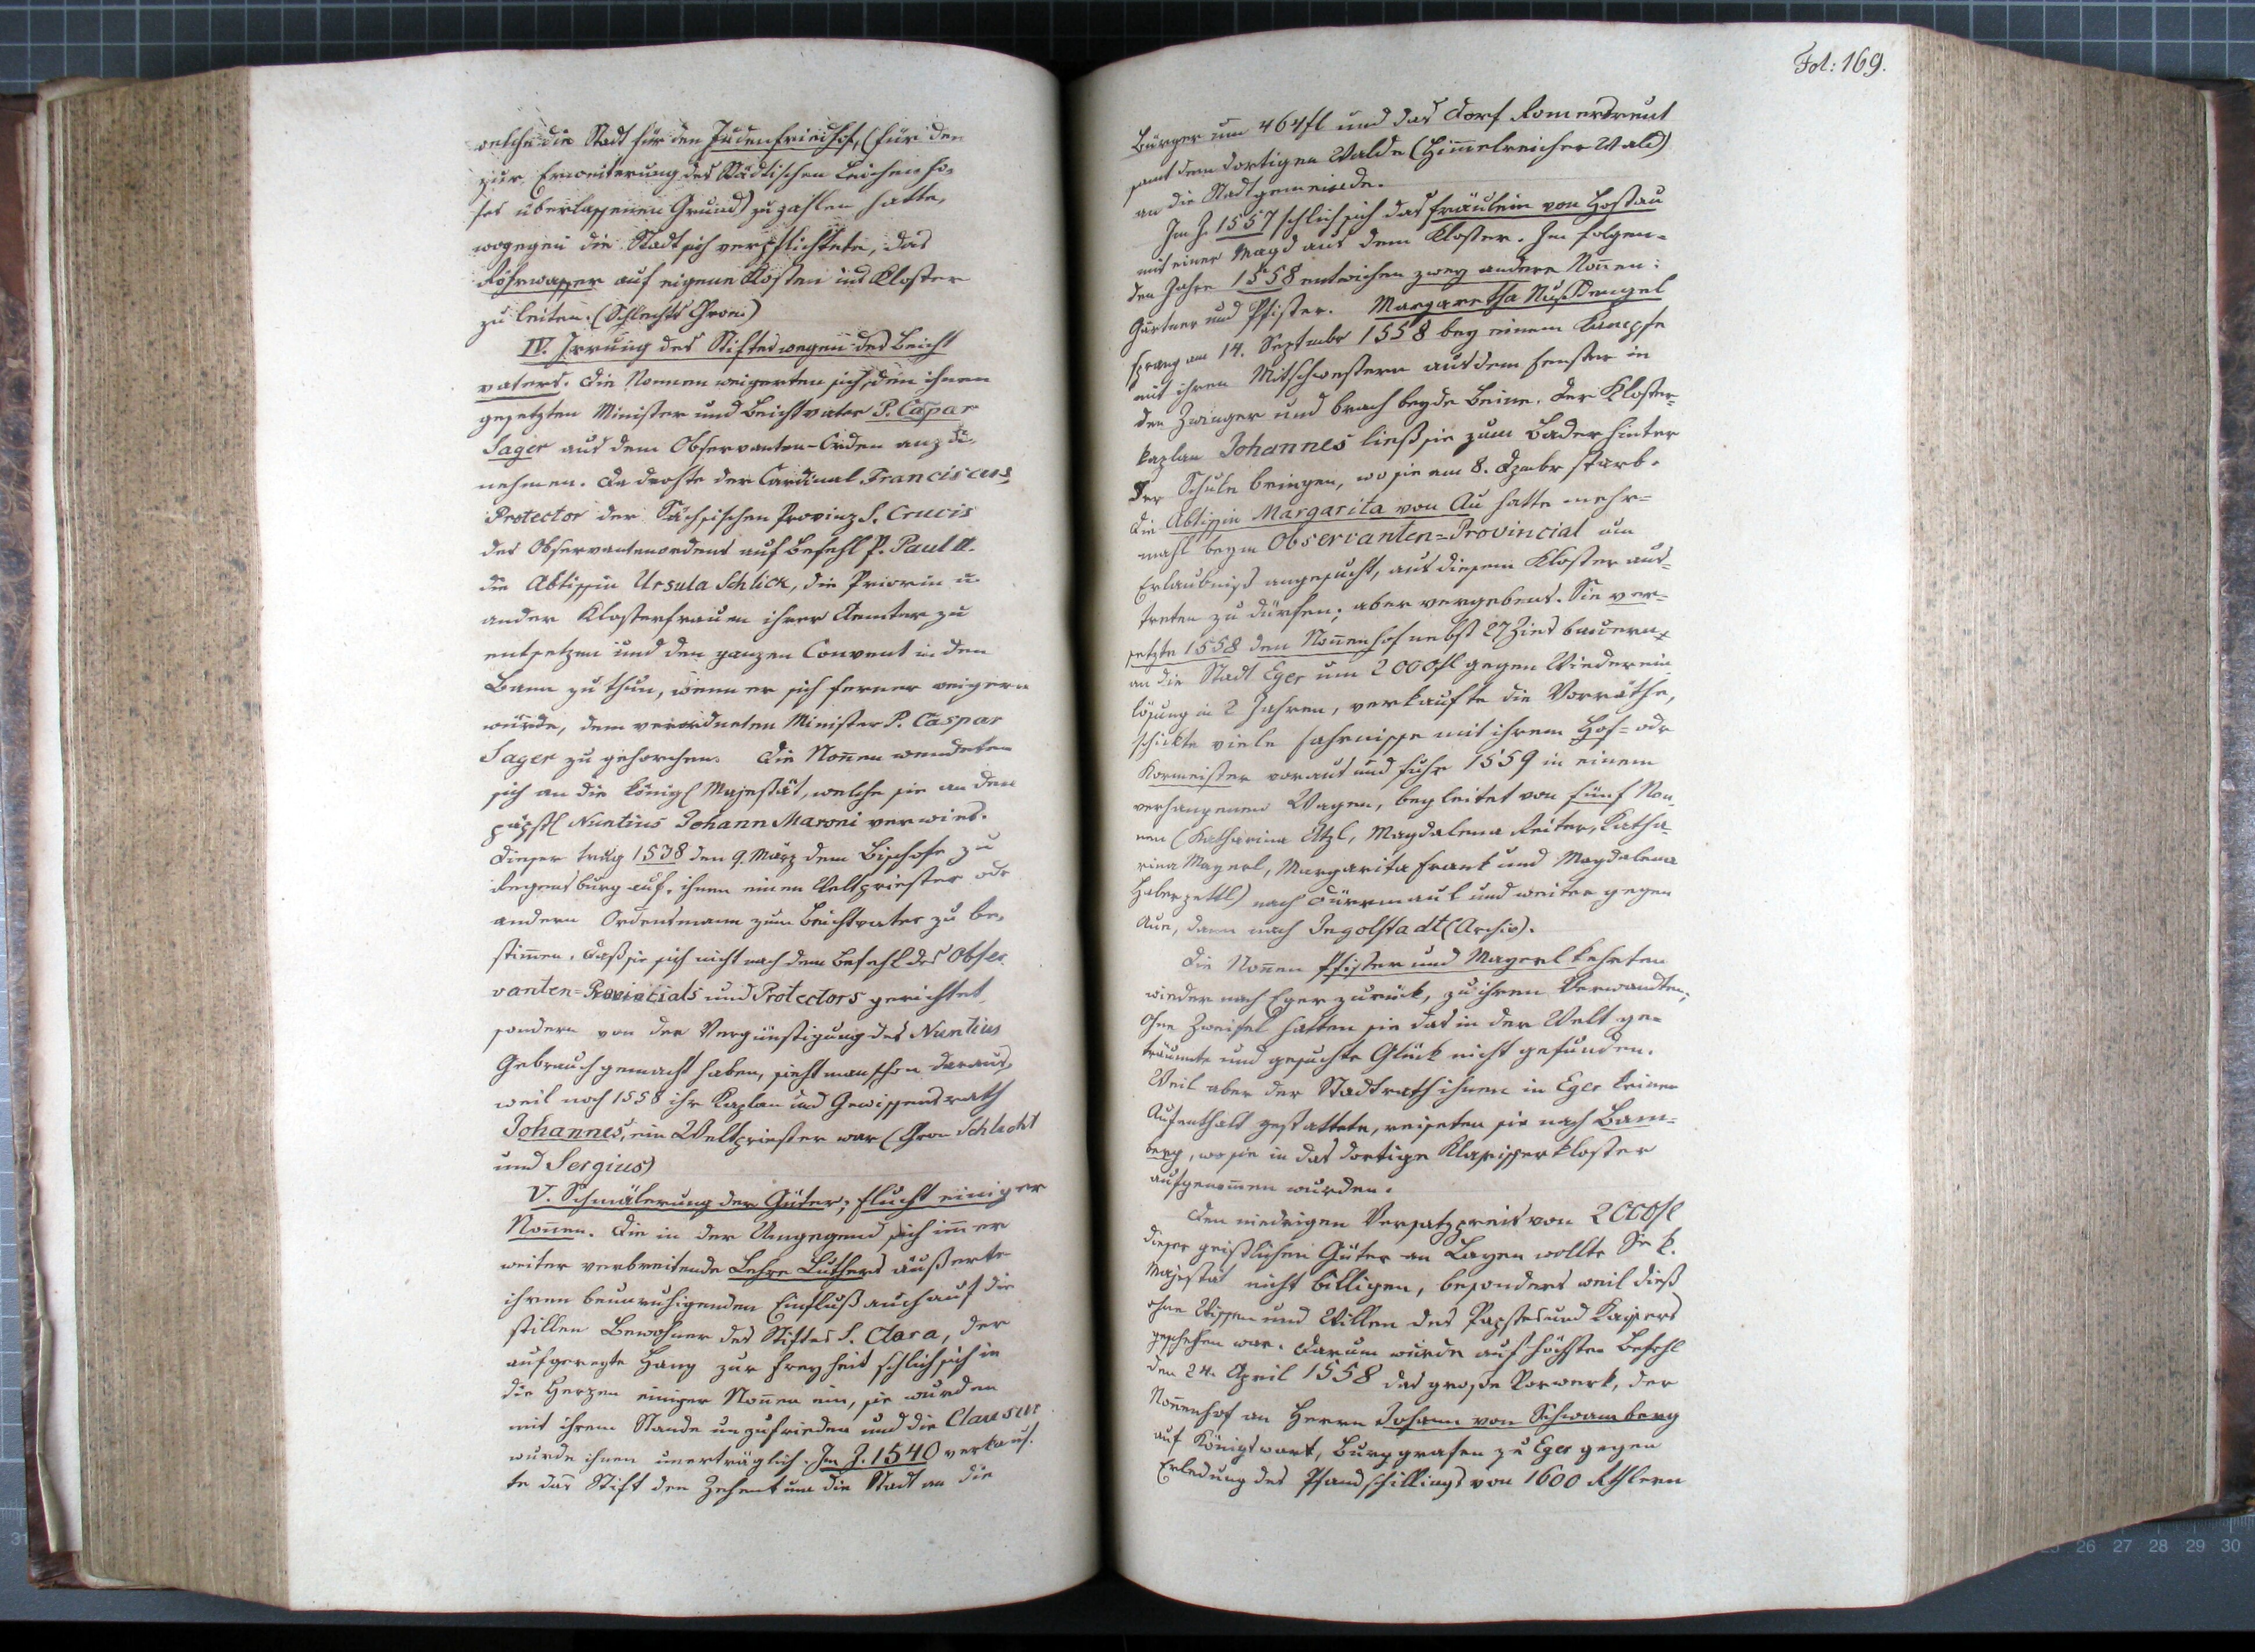 welche die Stadt für den Judenfriedhof, (für den
zur Erweiterung des Städtischen Leichenho,
fes überlassenen Grund) zu zahlen hatte,
wogegen die Stadt sich verpflichtete, das
Röhrwasser auf eigene Kosten ins Kloster
zu leiten. (Schlechts Chron)
IV. Irrung des Stiftes wegen des Beicht
vaters. Die Nonnen weigerten sich, den ihnen
gesetzten Minister und Beichtvater P. Caspar
Sager aus dem Observanten-Orden anzu,
nehmen. Da drohte der Cardinal Franciscus,
Protector der Sächsischen Provinz S. Crucis
des Observantenordens auf Befehl P. Paul
die Abtissin Ursula Schlick, die Priorin u.
ander Klosterfrauen ihrer Aemter zu
entsetzen und den ganzen Convent in den
Bann zu thun, wenn er sich ferner weigern
würde, dem verordneten Minister P. Caspar
Sager zu gehorchen. Die Nonen wendeten
sich an die königl Majestät, welche sie an den
päpstl Nuntius Johann Maroni verwies.
Dieser trug 1538 den 9. März dem Bischofe zu
Regensburg auf, ihnen einen Weltpriester odr
andern Ordensmann zum Beichtvater zu be,
stimen. Daß sie sich nicht nach dem Befehl des Obser
vanten=Provincials und Protectors gerichtet
sondern von der Vergünstigung des Nuntius
Gebrauch gemacht haben, sieht man schon daraus,
weil noch 1558 ihr Kaplan und Gewissensrath
Johannes, ein Weltpriester war (Chron Schlecht
und Sergius)
V. Schmälerung der Güter; Flucht einiger
Nonen. Die in der Umgegend sich imer
weiter verbreitende Lehre Luthers äußerte
ihren beunruhigenden Einfluß auch auf die
stillen Bewohner des Stiftes S. Clara, der
aufgeregte Hang zur Freyheit schlich sich in
die Herzen einiger Nonen ein, sie wurden
mit ihrem Stande unzufrieden und die Clausur
wurde ihnen unerträglich. Im J. 1540 verkauf.
te das Stift den Zehent um die Stadt an die
Fol: 169.
Bürger um 464fl und das Dorf Romersreut
samt dem dortigen Walde (Himelreicher Wald)
an die Stadtgemeinde.
Im J. 1557 schlich sich das Fräulein von Hostau
mit einer Magd aus dem Kloster. Im folgen=
den Jahre 1558 entwichen zwey andere Nonen:
Gärtner und Pfister. Margaretha Nußdengel
sprang am 14. Septmbr 1558 bey einem Kampfe
mit ihren Mitschwestern aus dem Fenster in
den Zwinger und brach beyde Beine. Der Kloster=
kaplan Johannes ließ sie zum Bader hinter
der Schule bringen, wo sie am 8. Dzmbr starb.
Die Abtissin Margarita von Au hatte mehr=
mahl beym Observanten=Provincial um
Erlaubniß angesucht, aus diesem Kloster aus=
treten zu dürfen; aber vergebens. Sie ver=
setzte 1558 den Nonenhof nebst 27 Zinsbauern
an die Stadt Eger um 2000fl gegen Wiederein
lösung in 2 Jahren, verkaufte die Vorräthe,
schickte viele Fahrnisse mit ihrem Hof= odr
Kormeister voraus und fuhr 1559 in einem
verhangenen Wagen, begleitet von fünf Non,
nen (Katharina Atzl, Magdalena Reiter, Katha=
rina Mayerl, Margarita Frank und Magdalena
Haberzettl) nach Dürrmaul und weiter gegen
Aue, dann nach Ingolstadt (Archiv).
Die Nonen Pfister und Mayerl kehrten
wieder nach Eger zurück, zu ihren Verwandten;
ohne Zweifel hatten sie das in der Welt ge=
träumte und gesuchte Glück nicht gefunden.
Weil aber der Stadtrath ihnen in Eger keinen
Aufenthalt gestattete, reiseten sie nach Bam=
berg, wo sie in das dortige Klarisserkloster
aufgenomen wurden.
Den niedrigen Versatzpreis von 2000fl
dieser geistlichen Güter an Layen wollte Se k.
Majestät nicht billigen, besonders weil dieß
ohne Wissen und Willen des Papstes und Kaisers
geschehen war. Darum wurde auf höchsten Befehl
den 24. April 1558 das große Vorwerk, der
Nonenhof an Herrn Johann von Schwamberg
auf Königswart, Burggrafen zu Eger gegen
Erledung des Pfandschillings von 1600 Rthlern